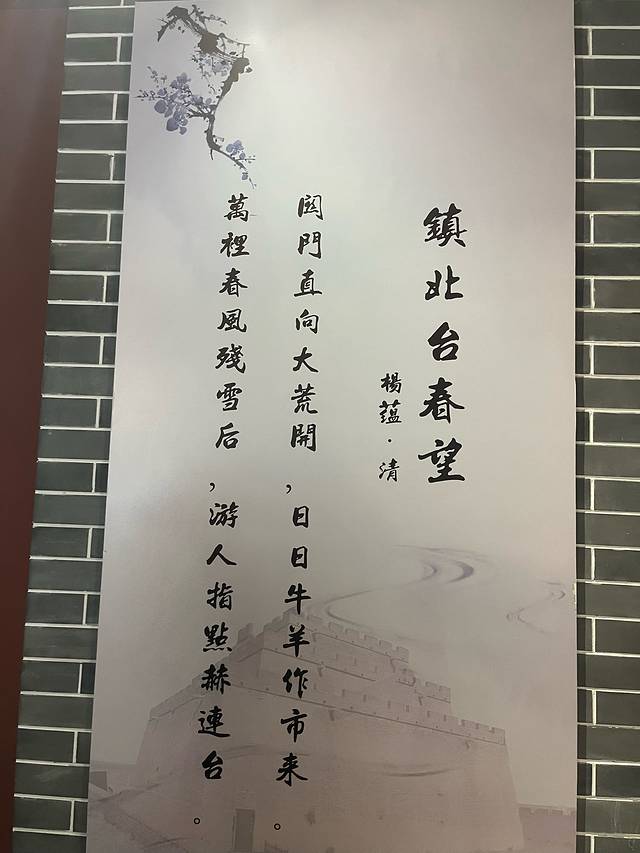 鎮北台春望
楊蕴·清
関門直向大荒開,日日牛羊作市来。
萬裡春風殘雪后,游人指點赫連台。